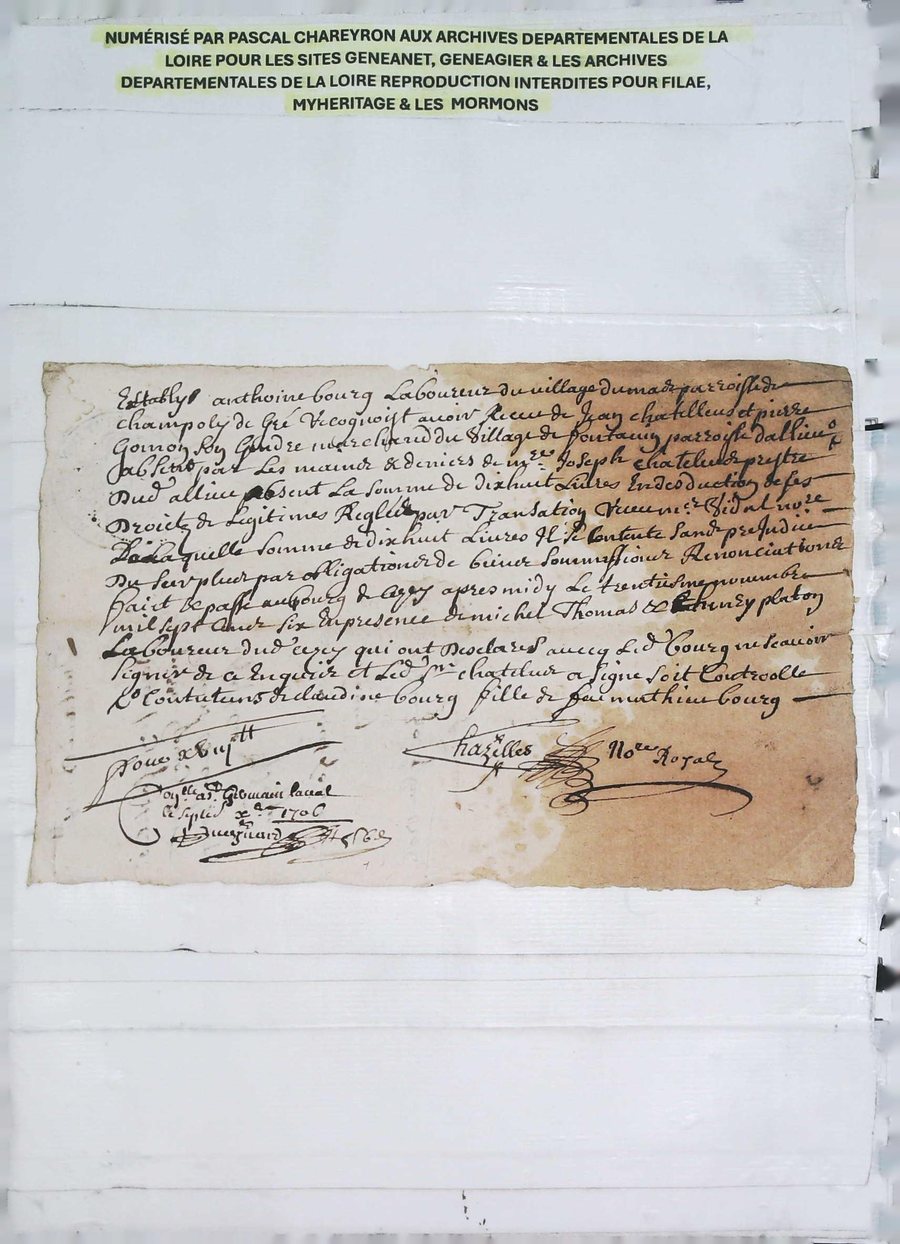 NUMÉRISÉ PAR PASCAL CHAREYRON AUX ARCHIVES DEPARTEMENTALES DE LA
LOIRE POUR LES SITES GENEANET, GENEAGIER & LES ARCHIVES
DEPARTEMENTALES DE LA LOIRE REPRODUCTION INTERDITES POUR FILAE,
MYHERITAGE & LES MORMONS
Estably anthoine bourg Laboureur du village du mas parroisse de
champoly de gré Recognoist avoir Receu de Jean chatelus et pierre
gomon son gendre marchand du village de parroisse dallieu
absent par les mains & deniers de mre Joseph chatelus prestre
Dud' allieu absent La somme de dixhuit Livres En desduction de ses
Droictz de Legitimes Reglée par Transation Receu me Vidal nore
De Laquelle somme de dixhuit Livres Il se contente sans prejudice
Du surplus par obligation & de biens soummissions Renonciation &
Faict & passé au bourg de cezay apres midy Le trentiesme novembre
mil sept cens six En presence de michel Thomas & platon
Laboureur dud' cezay qui ont Desclaré avecq Led' bourg ne scavoir
signer de ce Enquis et Led' sr chatelus a signé soit Controollé
de claudine bourg fille de feu mathieu bourg
Pour
Chazelles Nore Royal
a St Germain Laval
le sept xbre 1706